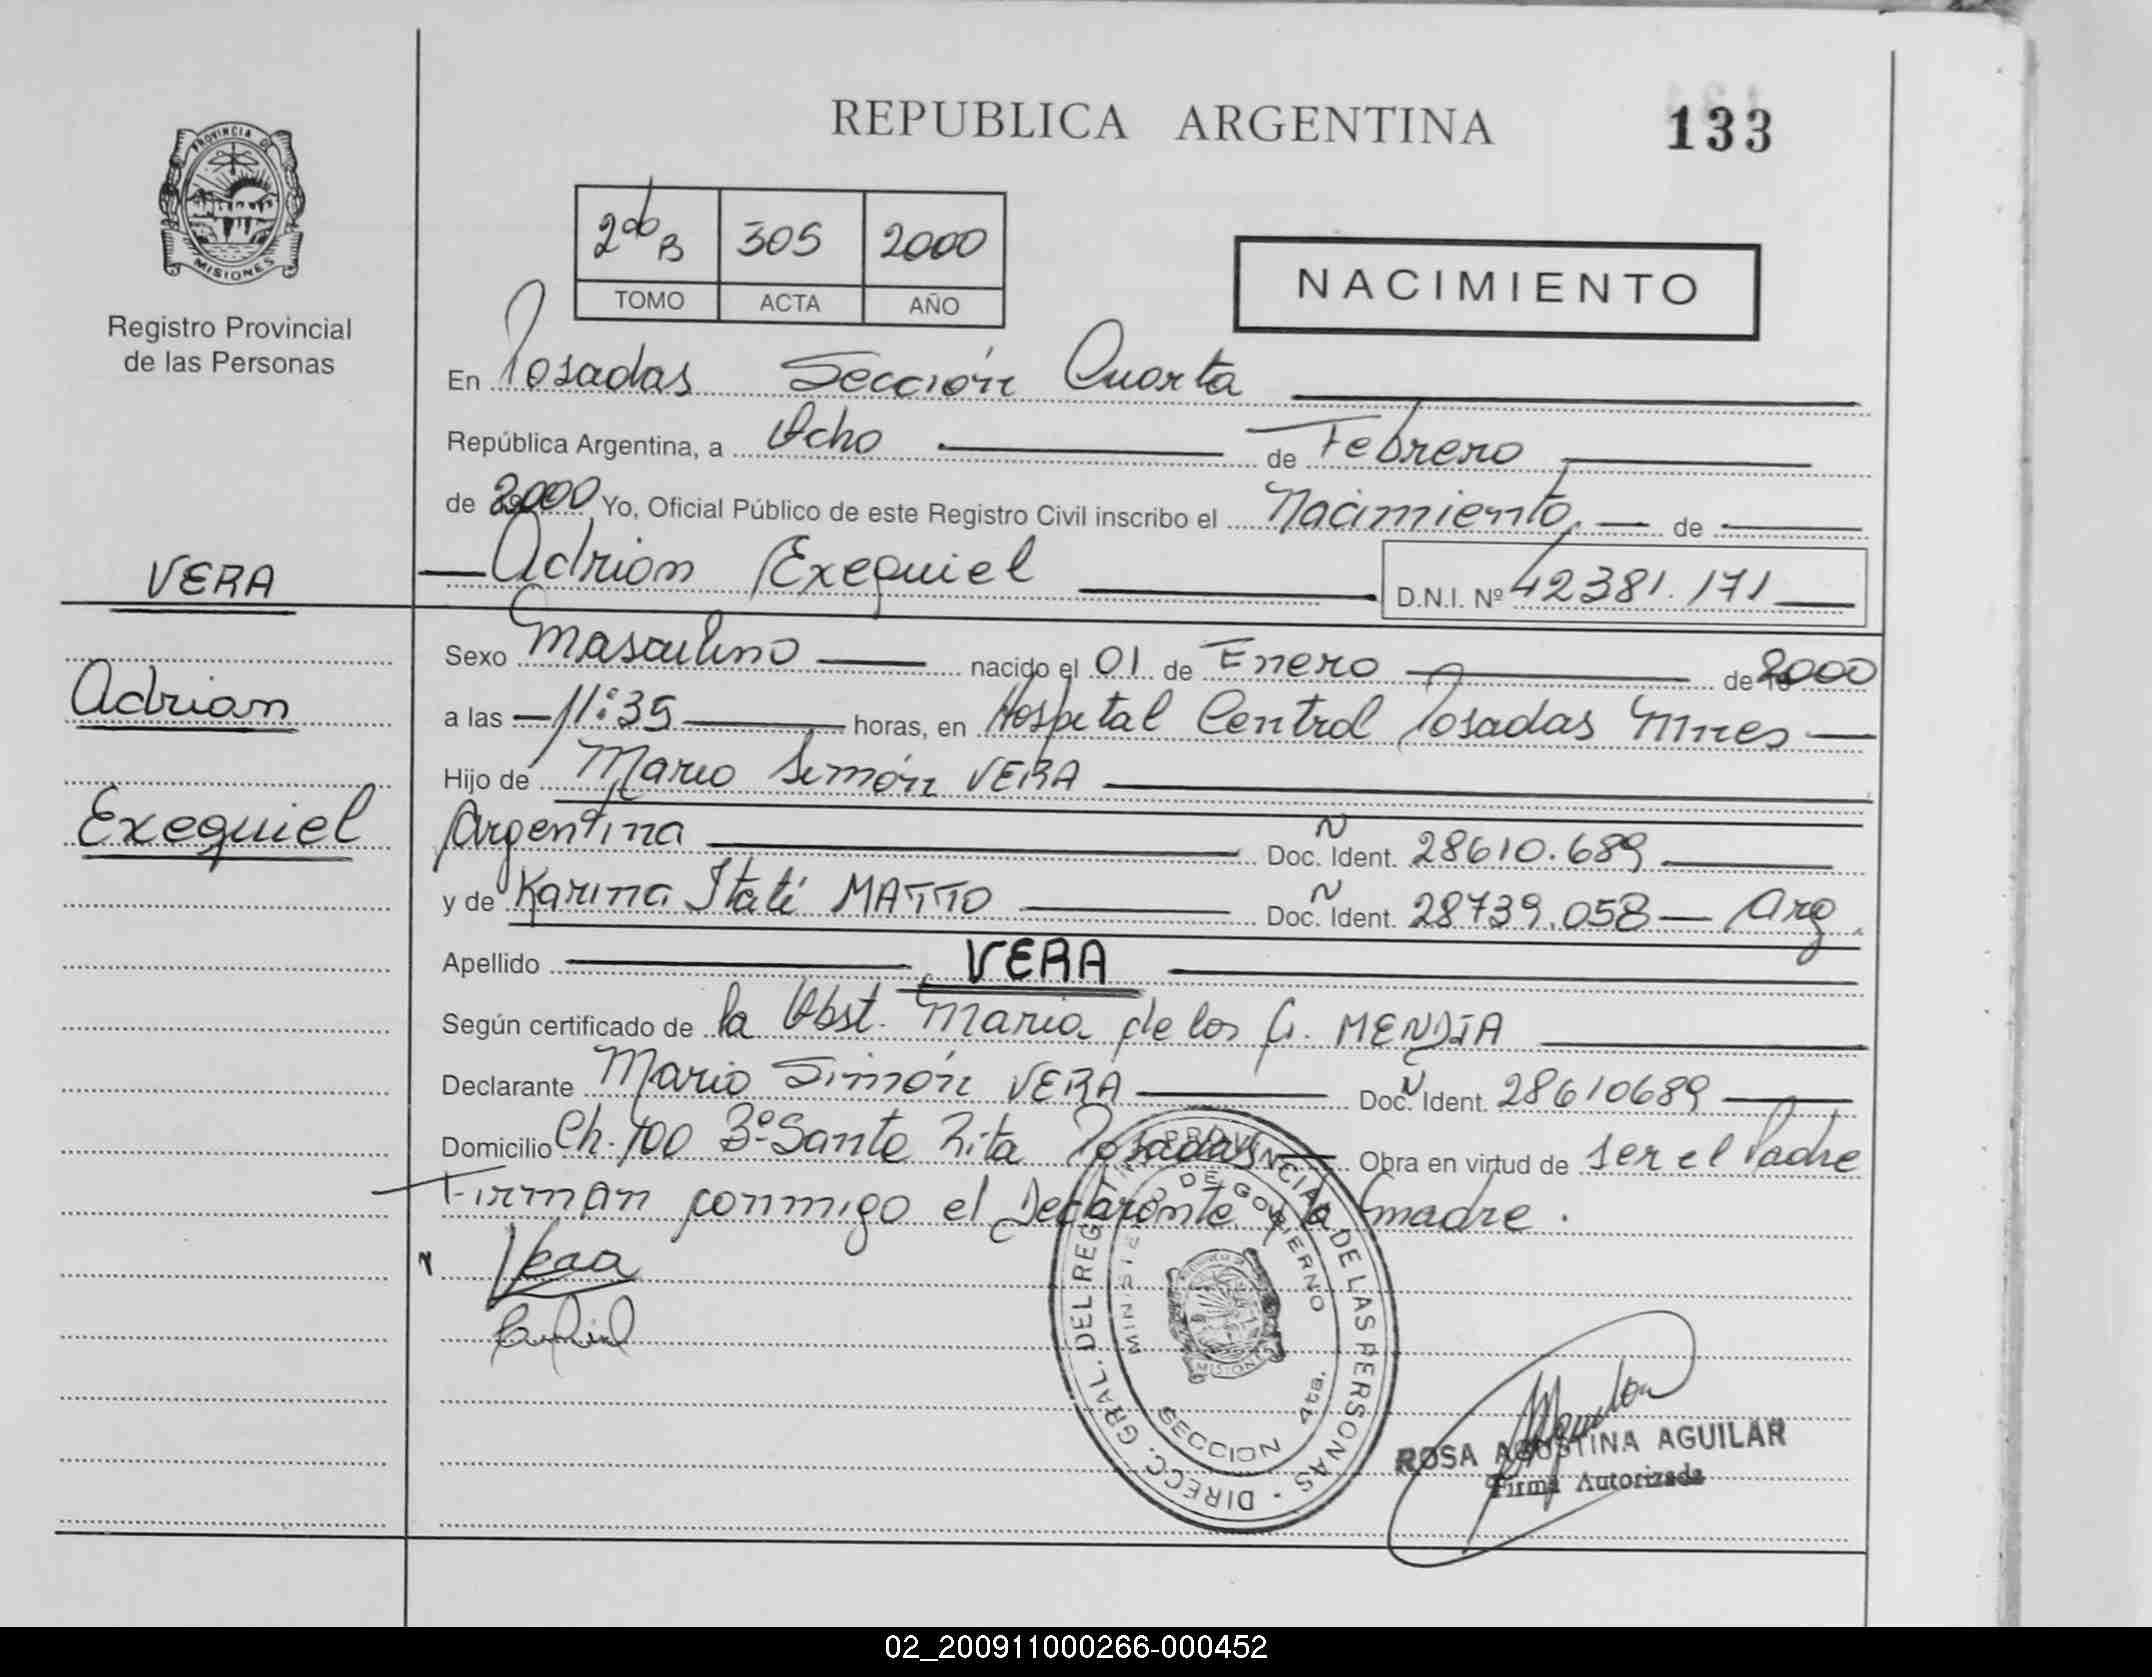 REPUBLICA ARGENTINA
133
PROVINCIA DE
MISIONES
Registro Provincial
de las Personas
2do B 305 2000
TOMO ACTA AÑO
NACIMIENTO
En Posadas Sección Cuarta
República Argentina, a Ocho de Febrero
de 2000 Yo, Oficial Público de este Registro Civil inscribo el Nacimiento de
VERA
Adrian Exequiel D.N.I. Nº 42381.171
Sexo Masculino nacido el 01 de Enero de 2000
Adrian
a las 11:35 horas, en Hospital Central Posadas Mnes
Hijo de Mario Simón VERA
Exequiel
Argentina Doc. Ident. 28610.689
y de Karina Itatí MATTO Doc. Ident. 28739.058 Arg.
Apellido VERA
Según certificado de la Obst. Maria de los G. MENDIA
Declarante Mario Simón VERA Doc. Ident. 28610689
Domicilio Ch. 100 Bº Santa Rita Posadas Obra en virtud de ser el Padre
Firman conmigo el Declarante y la madre.
Vera
DIRECC. GRAL. DEL REGISTRO PROVINCIAL DE LAS PERSONAS
MINISTERIO DE GOBIERNO
MISIONES
SECCION 4ta.
ROSA AGUSTINA AGUILAR
Firma Autorizada
02_200911000266-000452